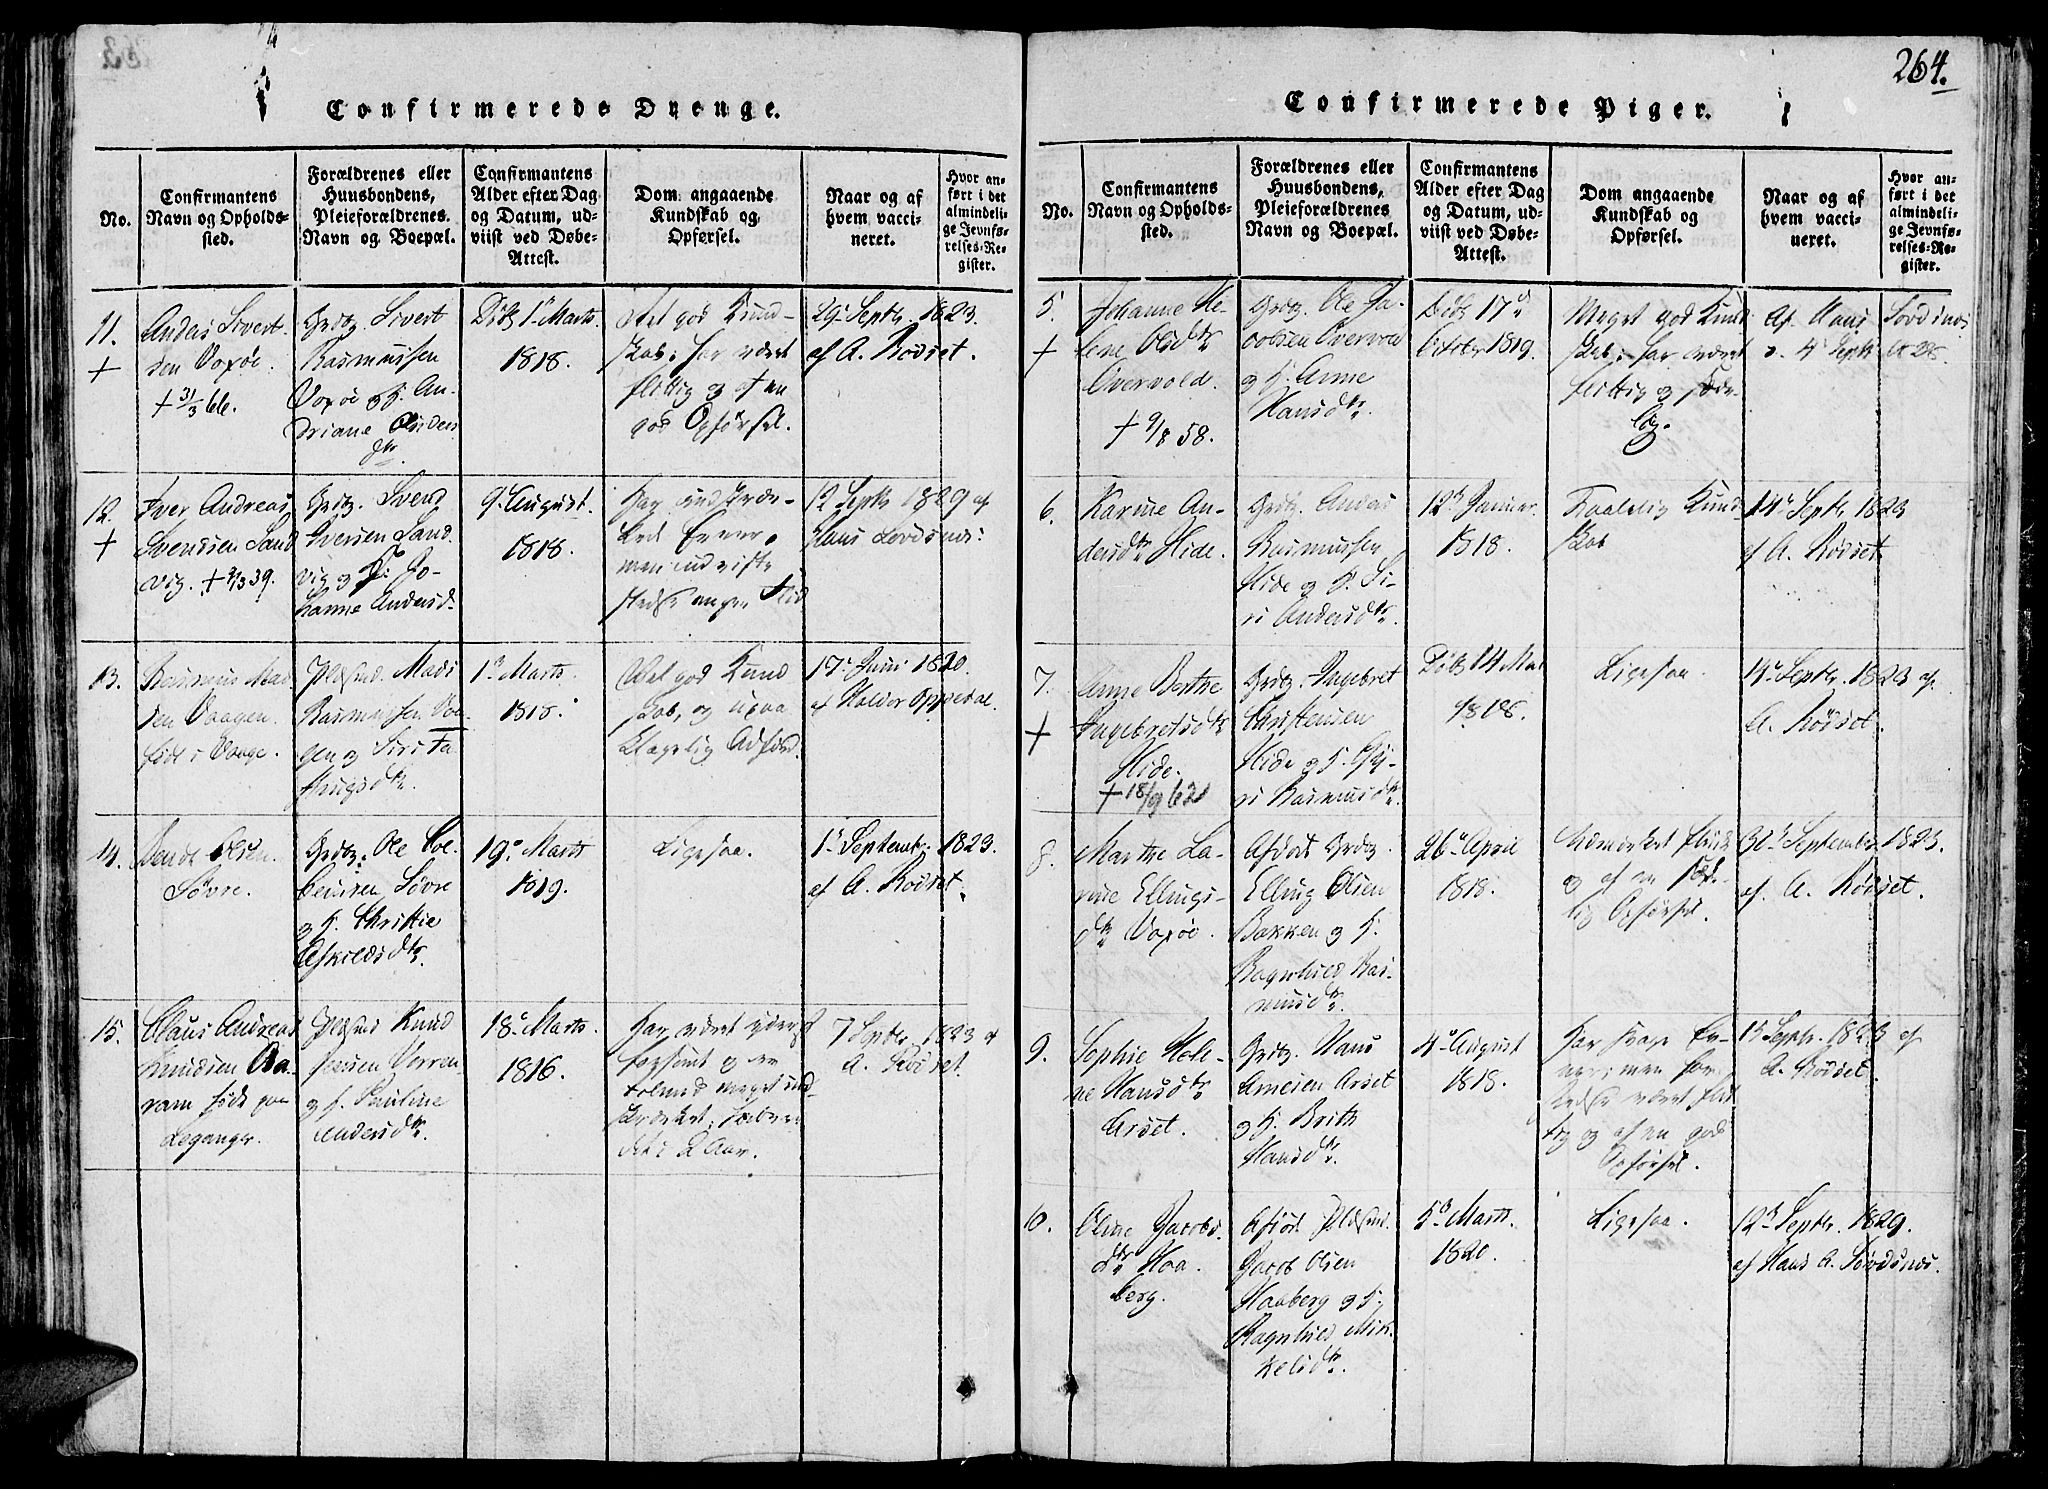 264.
Confirmerede Drenge.
No.
Confirmantens
Navn og Opholds-
sted.
Forældrenes eller
Huusbondens,
Pleieforældrenes
Navn og Boepæl.
Confirmantens
Alder efter Dag
og Datum, ud-
viist ved Døbe-
Attest.
Dom angaaende
Kundskab og
Opførsel.
Naar og af
hvem vacci-
neret.
Hvor an-
ført i det
almindeli-
ge Jevnfø-
relses-Re-
gister.
11.
+
Andas Sivert-
sen Voxøe.
+ 31/3 66.
Grdbg. Sivert
Rasmussen
Voxøe og K. An-
driane
Døbt 1ste Marts
1818.
Vel god Kund-
skab; har været
flittig og af en
god Opførsel.
29de Septbr. 1823.
af A. Rødset.
12.
+
Iver Andreas
Svendsen Sand
vig.
Grdbg. Svend
Iversen Sand
vig og K. Jo-
hanne Andersd.
9de August.
1818.
12 Septbr 1829 af
Hans
13.
Rasmus Mad
sen Vaagen
født i Vaage.
Plssmd. Mads
Rasmussen Vaa
gen og Siri
1ste Marts
1818.
Vel god Kund
skab, og upaa
klagelig Adfærd.
17de Juni 1820.
af Haldor Oppedal.
14.
Bendt Olsen
Søvre.
Grdbg. Ole
Søvre
og K. Christie
19de Marts
1819.
Ligesaa.
1ste Septemb. 1823.
af A. Rødset.
15.
Claus Andreas
Knudsen Aa-
ram født paa
Leganger.
Plssmd Knud
Jensen
og K. Pauline
Andersdtr.
18de Marts.
1816.
Har været yderst
forsømt og en
i 2 Aar.
7 Septbr. 1823 af
A. Rødset.
Confirmerede Piger.
No.
Confirmantens
Navn og Opholds-
sted.
Forældrenes eller
Huusbondens,
Pleieforældrenes
Navn og Boepæl.
Confirmantens
Alder efter Dag
og Datum, ud-
viist ved Døbe-
Attest.
Dom angaaende
Kundskab og
Opførsel.
Naar og af
hvem vacci-
neret.
Hvor an-
ført i det
almindeli-
ge Jevnfø-
relses-Re-
gister.
5.
+
Johanne He-
lene Olsdtr
Overvold.
+ 9/8 58.
Grdbg. Ole Ja-
cobsen Overvold
og K. Anne
Hansdtr.
Døbt 17de
October 1819.
Meget god Kund
skab; har været
flittig og sæde-
lig.
Af Hans
d. 4de Septb
6.
Karine An-
dersdtr Hide.
Grdbg. Andas
Rasmussen
Hide og K. Si-
ri Andersdtr.
12te Januar.
1818.
Taalelig Kund
skab
14de Septbr 1823
af A. Rødset
7.
+
Anne Berthe
Ingebretsdtr
Hide.
+ 18/9 62
Grdbg. Ingebret
Christensen
Hide og K.
Rasmusdtr.
Døbt 14 Mai
1818.
Ligesaa.
14de Septbr. 1823 af
A. Rødset.
8.
Marthe La-
rine Ellings-
dtr Voxøe.
Afdøde Grdbg.
Elling Olsen
Bakken og K.
Ragnhild Ras-
musdtr.
26de April
1818.
Udmærket Flid
og af en sæde-
lig Opførsel.
30te September 1823.
af A. Rødset.
9.
Sophie Hele-
ne Hansdtr
Arset.
Grdbg. Hans
Arnesen Arset
og K. Brith
Hansdtr.
4de August
1818.
Har svage Ev-
ner; men har
været flit
tig og af en god
Opførsel.
15 Septbr. 1823 af
A. Rødset.
10.
Oline Jacobs
dtr Haa
berg.
Afdøde Plssmd.
Jacob Olsen
Haaberg og K.
Ragnhild Mik
kelsdtr.
5te Marts.
1820.
Ligesaa.
12te Septbr. 1829.
af Hans A.